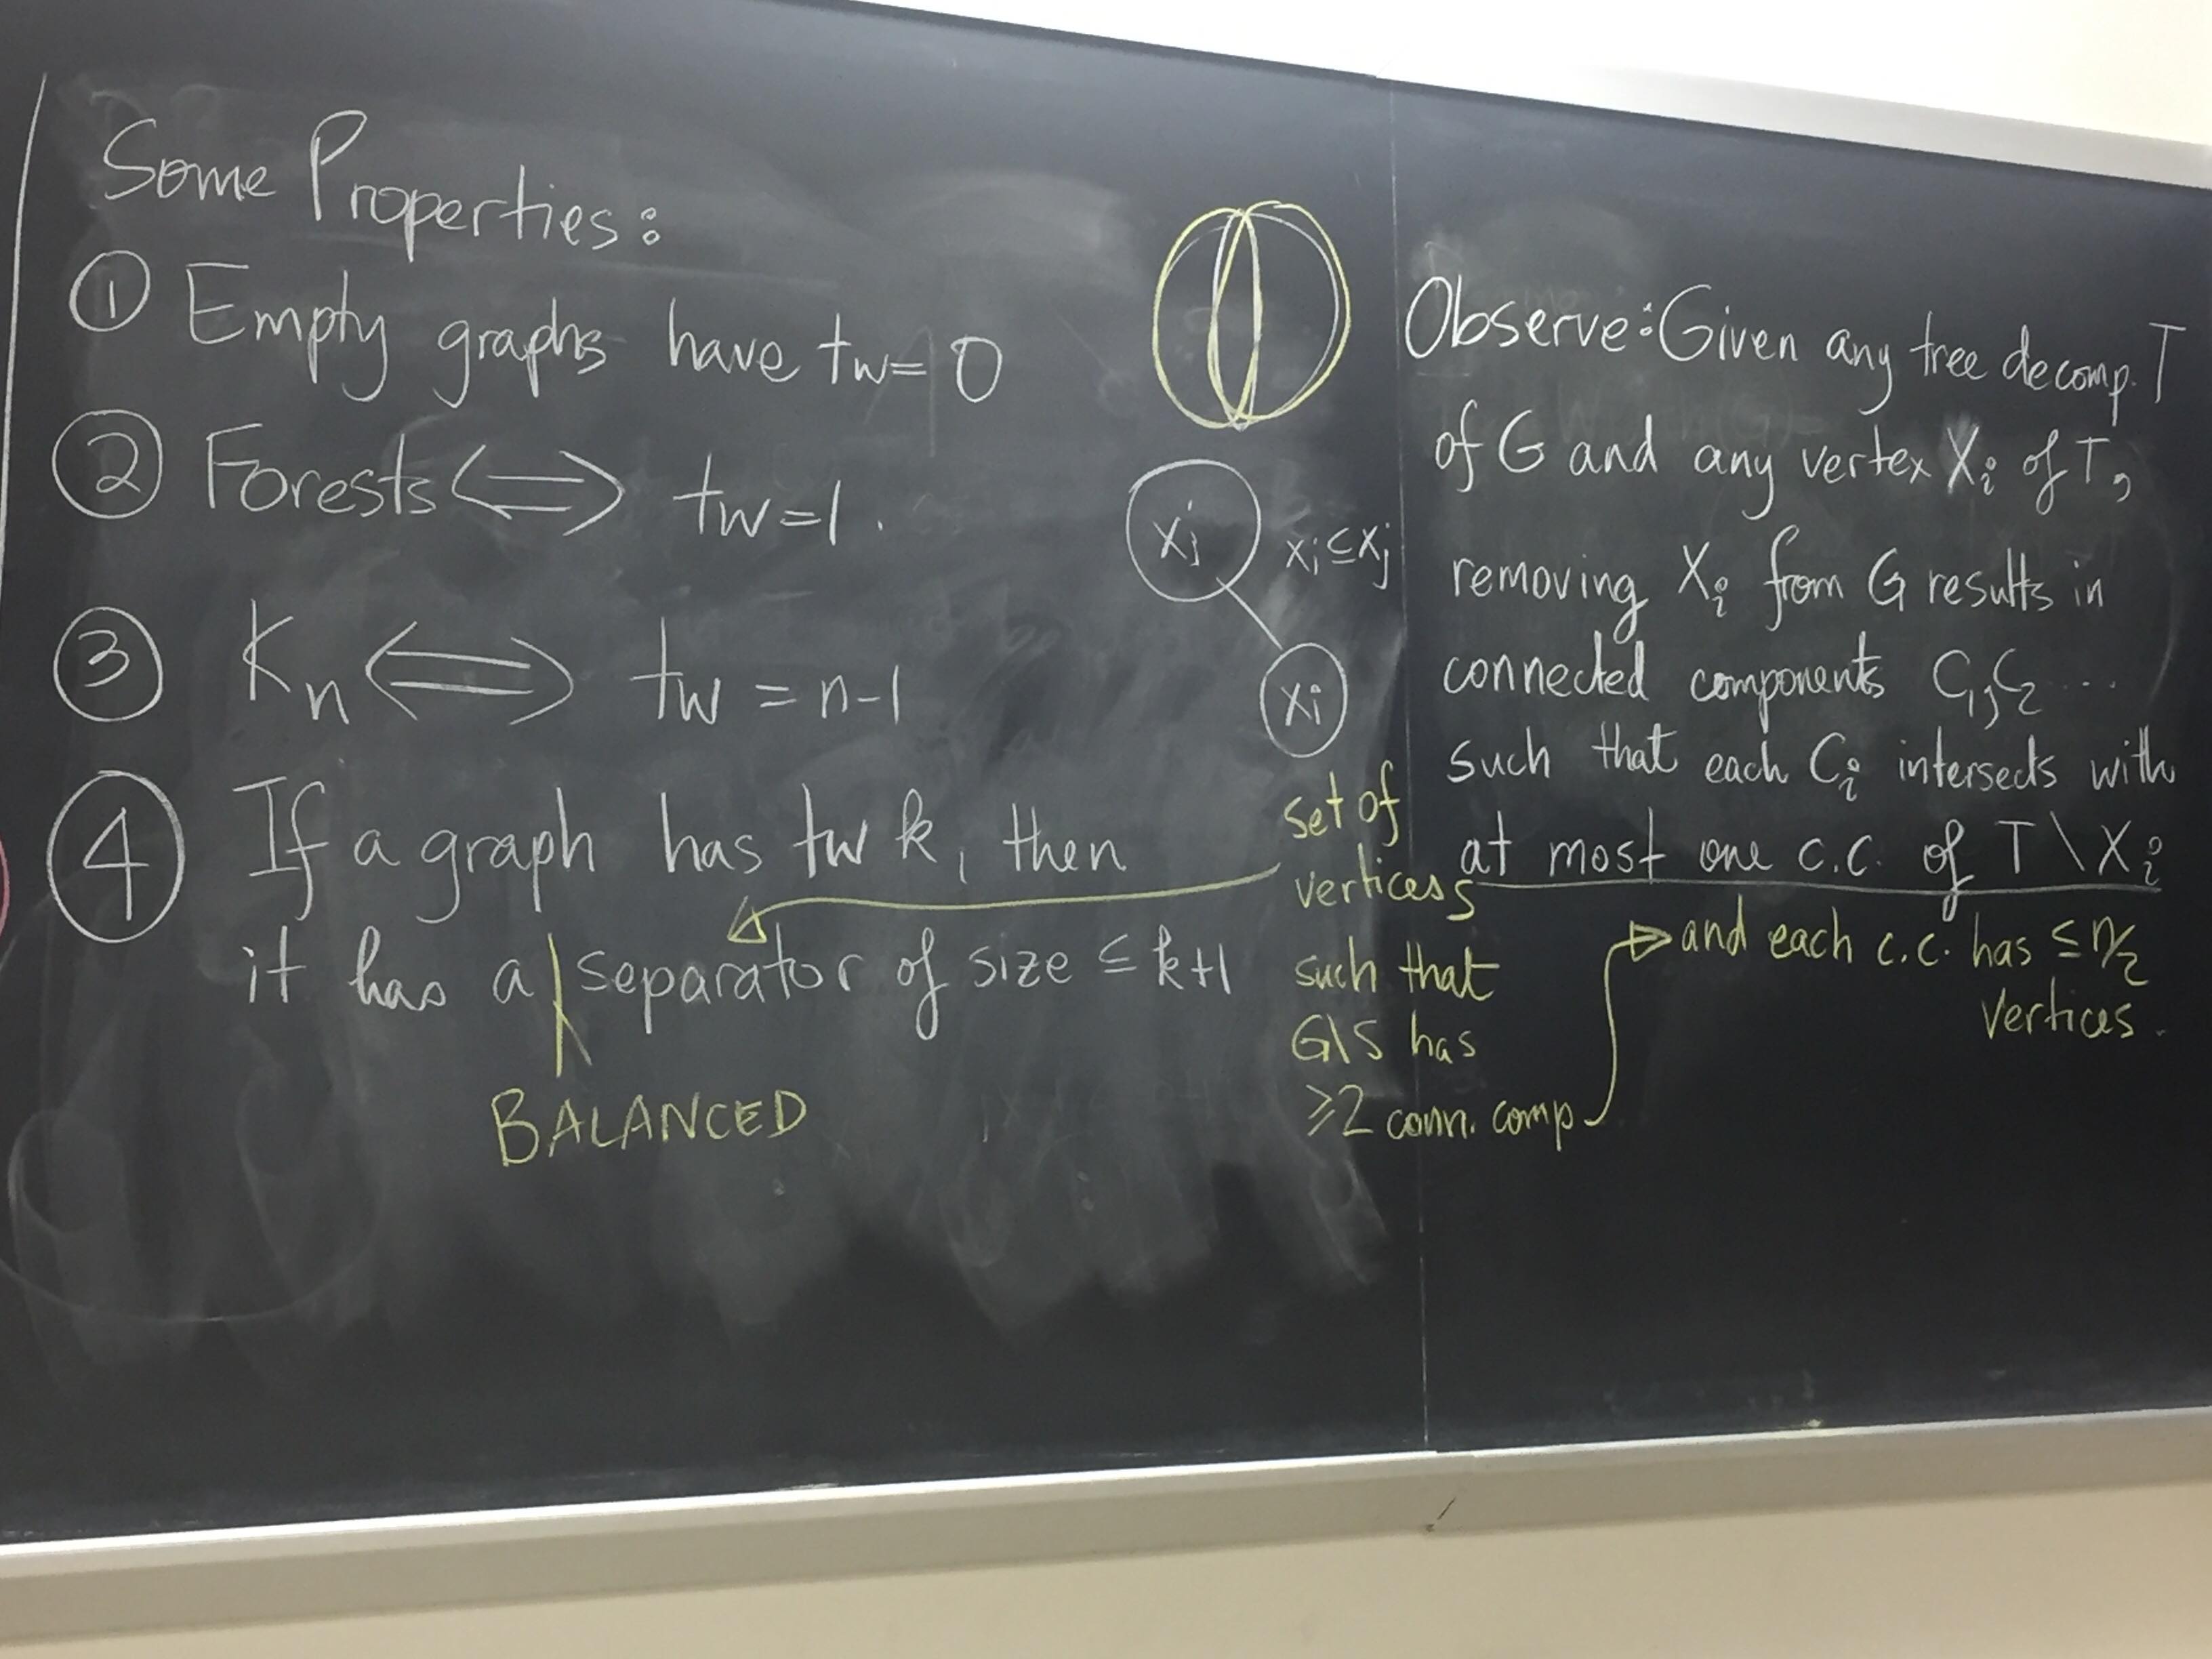 Some Properties:
① Empty graphs have tw=0
② Forests ⟺ tw=1.
③ Kn ⟺ tw = n-1
④ If a graph has tw k, then
it has a separator of size ≤ k+1
BALANCED
Xj
Xi ⊆ Xj
Xi
set of
vertices S
such that
G\S has
≥2 conn. comp
Observe: Given any tree decomp. T
of G and any vertex Xi of T,
removing Xi from G results in
connected components C1, C2 ...
such that each Ci intersects with
at most one c.c. of T \ Xi
and each c.c. has ≤ n/2
vertices.